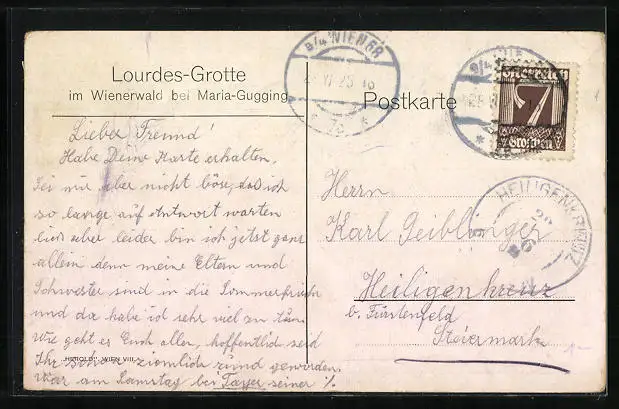 Lourdes-Grotte
im Wienerwald bei Maria-Gugging.
Postkarte
Lieber Freund!
Habe Deine Karte erhalten,
sei mir aber nicht böse, das ich
so lange auf Antwort warten
ließ aber leider bin ich jetzt ganz
allein denn meine Eltern und
Schwester sind in die Sommerfrische
und da habe ich sehr viel zu tun.
Wie geht es Euch allen, hoffentlich seid
Ihr schon ziemlich rund geworden.
War am Samstag bei seiner %
"HEROLD" WIEN VIII.
Herrn
Karl Geiblinger
Heiligenkreuz
b. Fürstenfeld
Steiermark
9/4 WIEN 68
VI 25
Österreich
7
Groschen
HEILIGENKREUZ